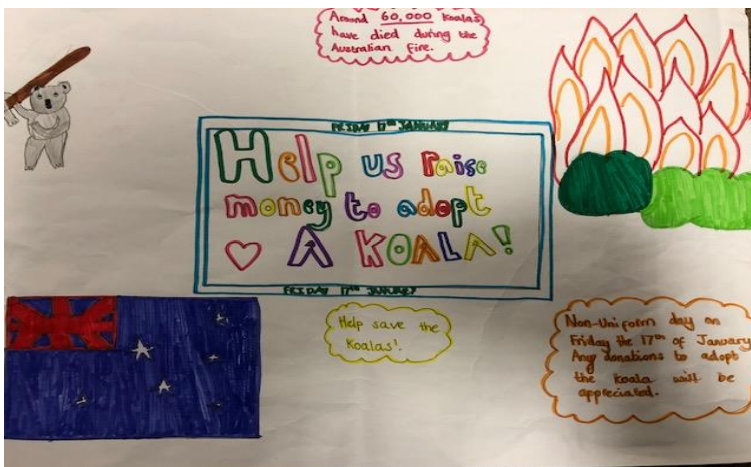 Around 60,000 Koalas
have died during the
Australian Fire.
FRIDAY 17TH JANUARY
Help us raise
money to adopt
A KOALA!
FRIDAY 17TH JANUARY
Help save the
Koalas!
Non-Uniform day on
Friday the 17th of January
Any donations to adopt
the koala will be
appreciated.